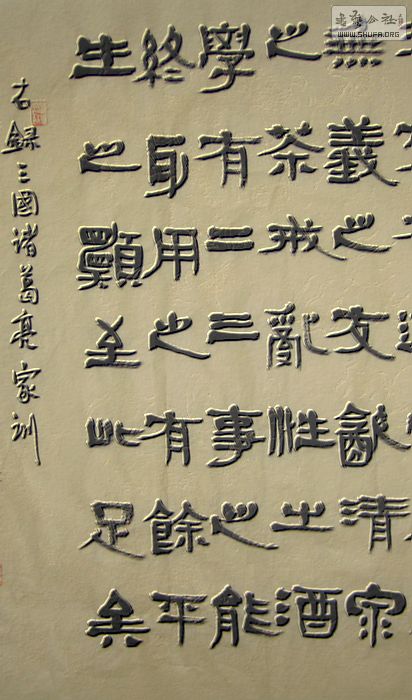 書法公社
WWW.SHUFA.ORG
無義之友清
之茶戒亂性之酒
學有二三事之能
終身用之有餘平
生之願至此足矣
右錄三國諸葛亮家訓